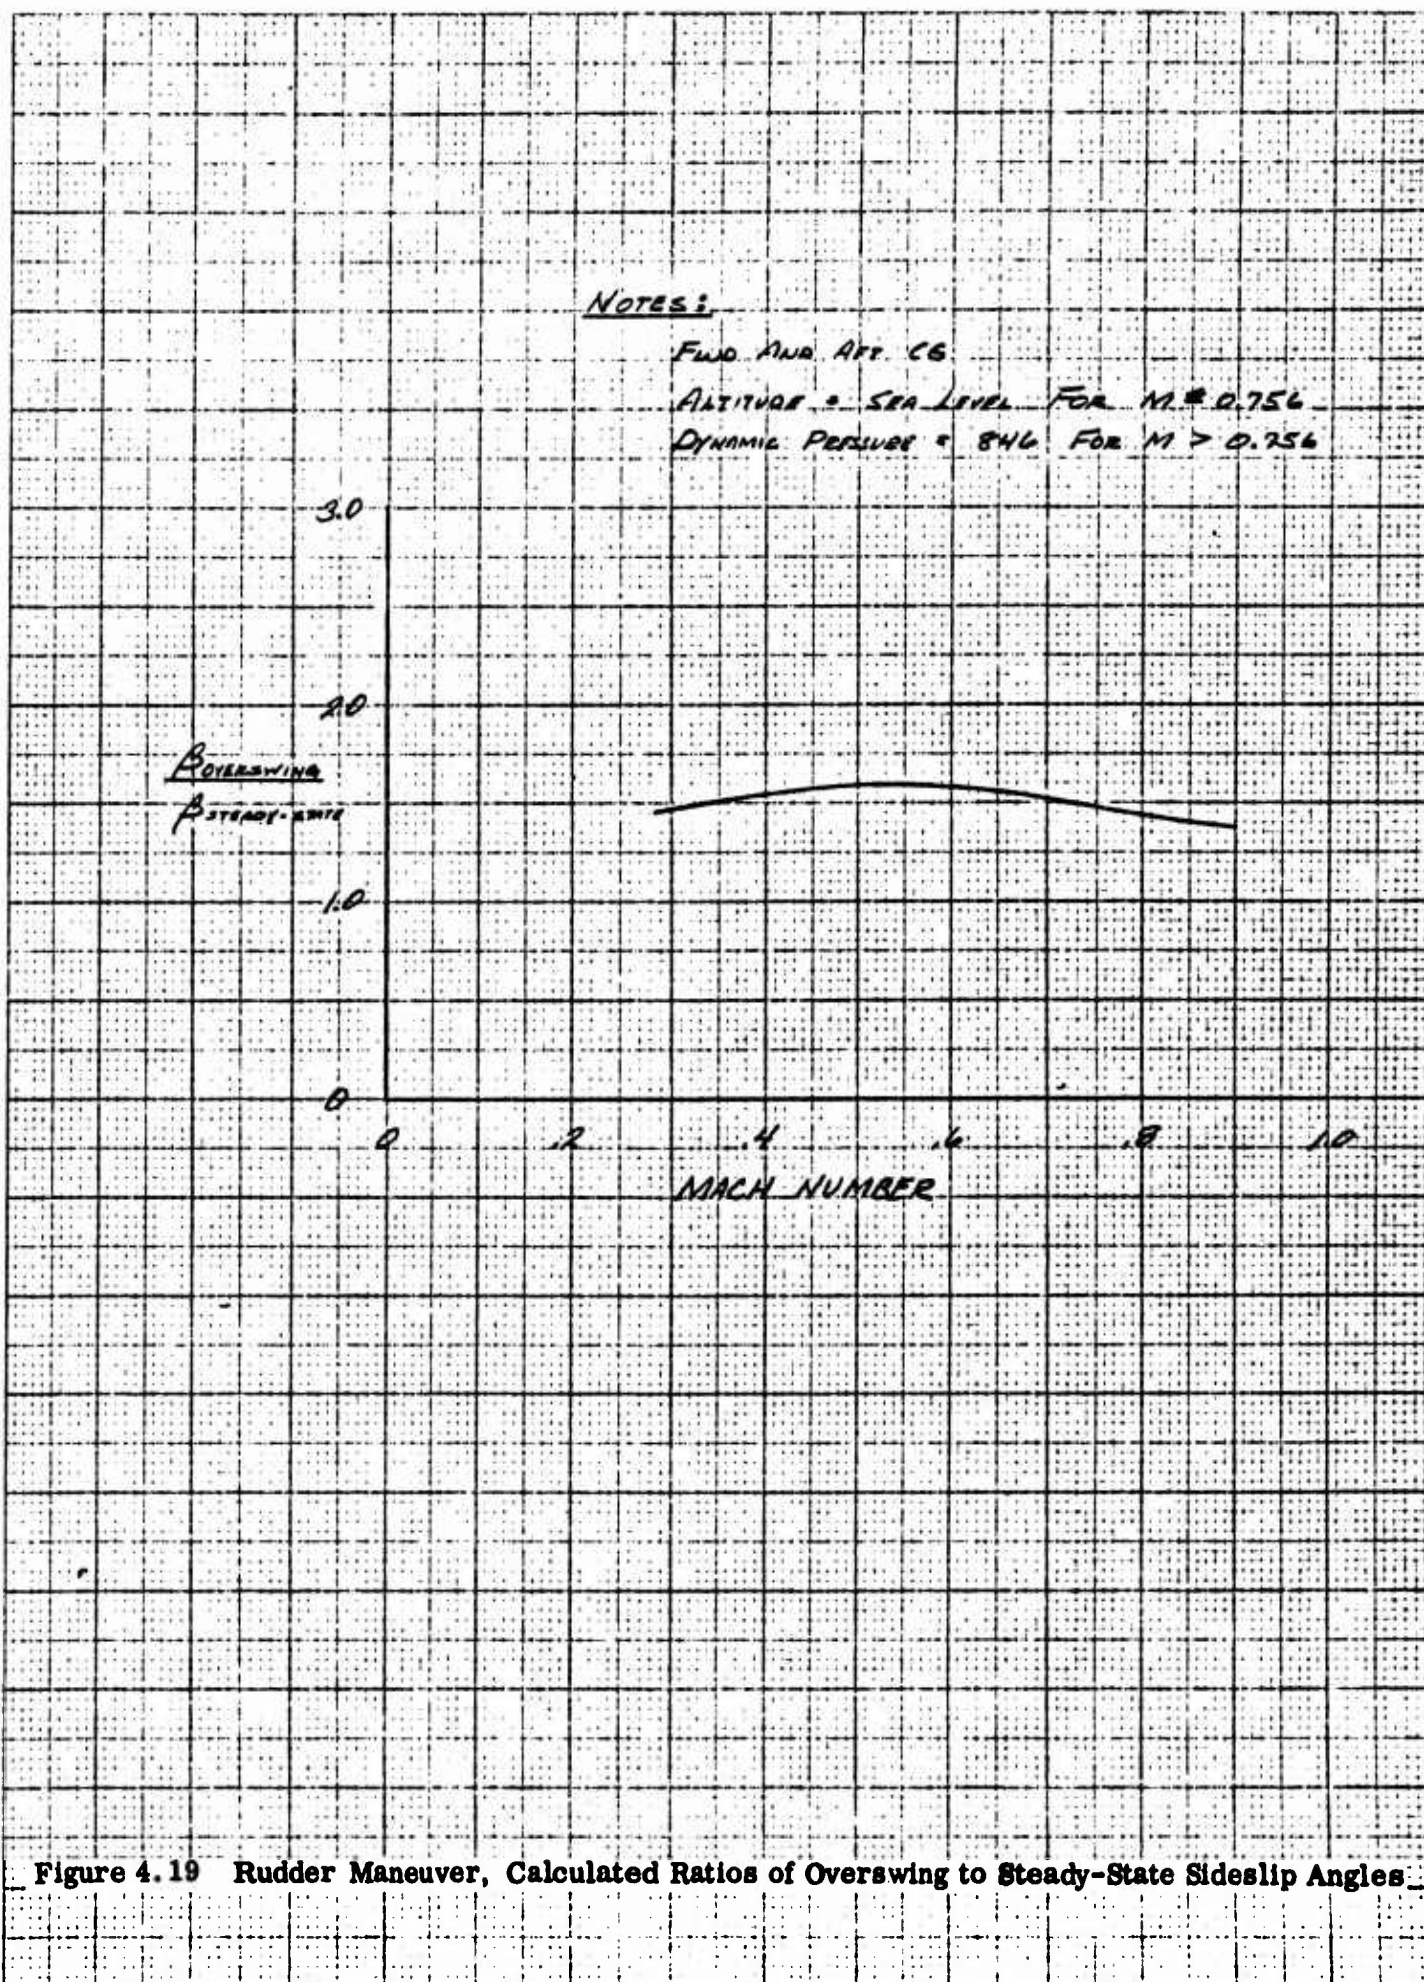 NOTES:
FWD AND AFT CG
ALTITUDE = SEA LEVEL FOR M ≤ 0.756
DYNAMIC PRESSURE = 846 FOR M > 0.756
3.0
2.0
βOVERSWING
βSTEADY-STATE
1.0
0
0 .2 .4 .6 .8 1.0
MACH NUMBER
Figure 4.19 Rudder Maneuver, Calculated Ratios of Overswing to Steady-State Sideslip Angles